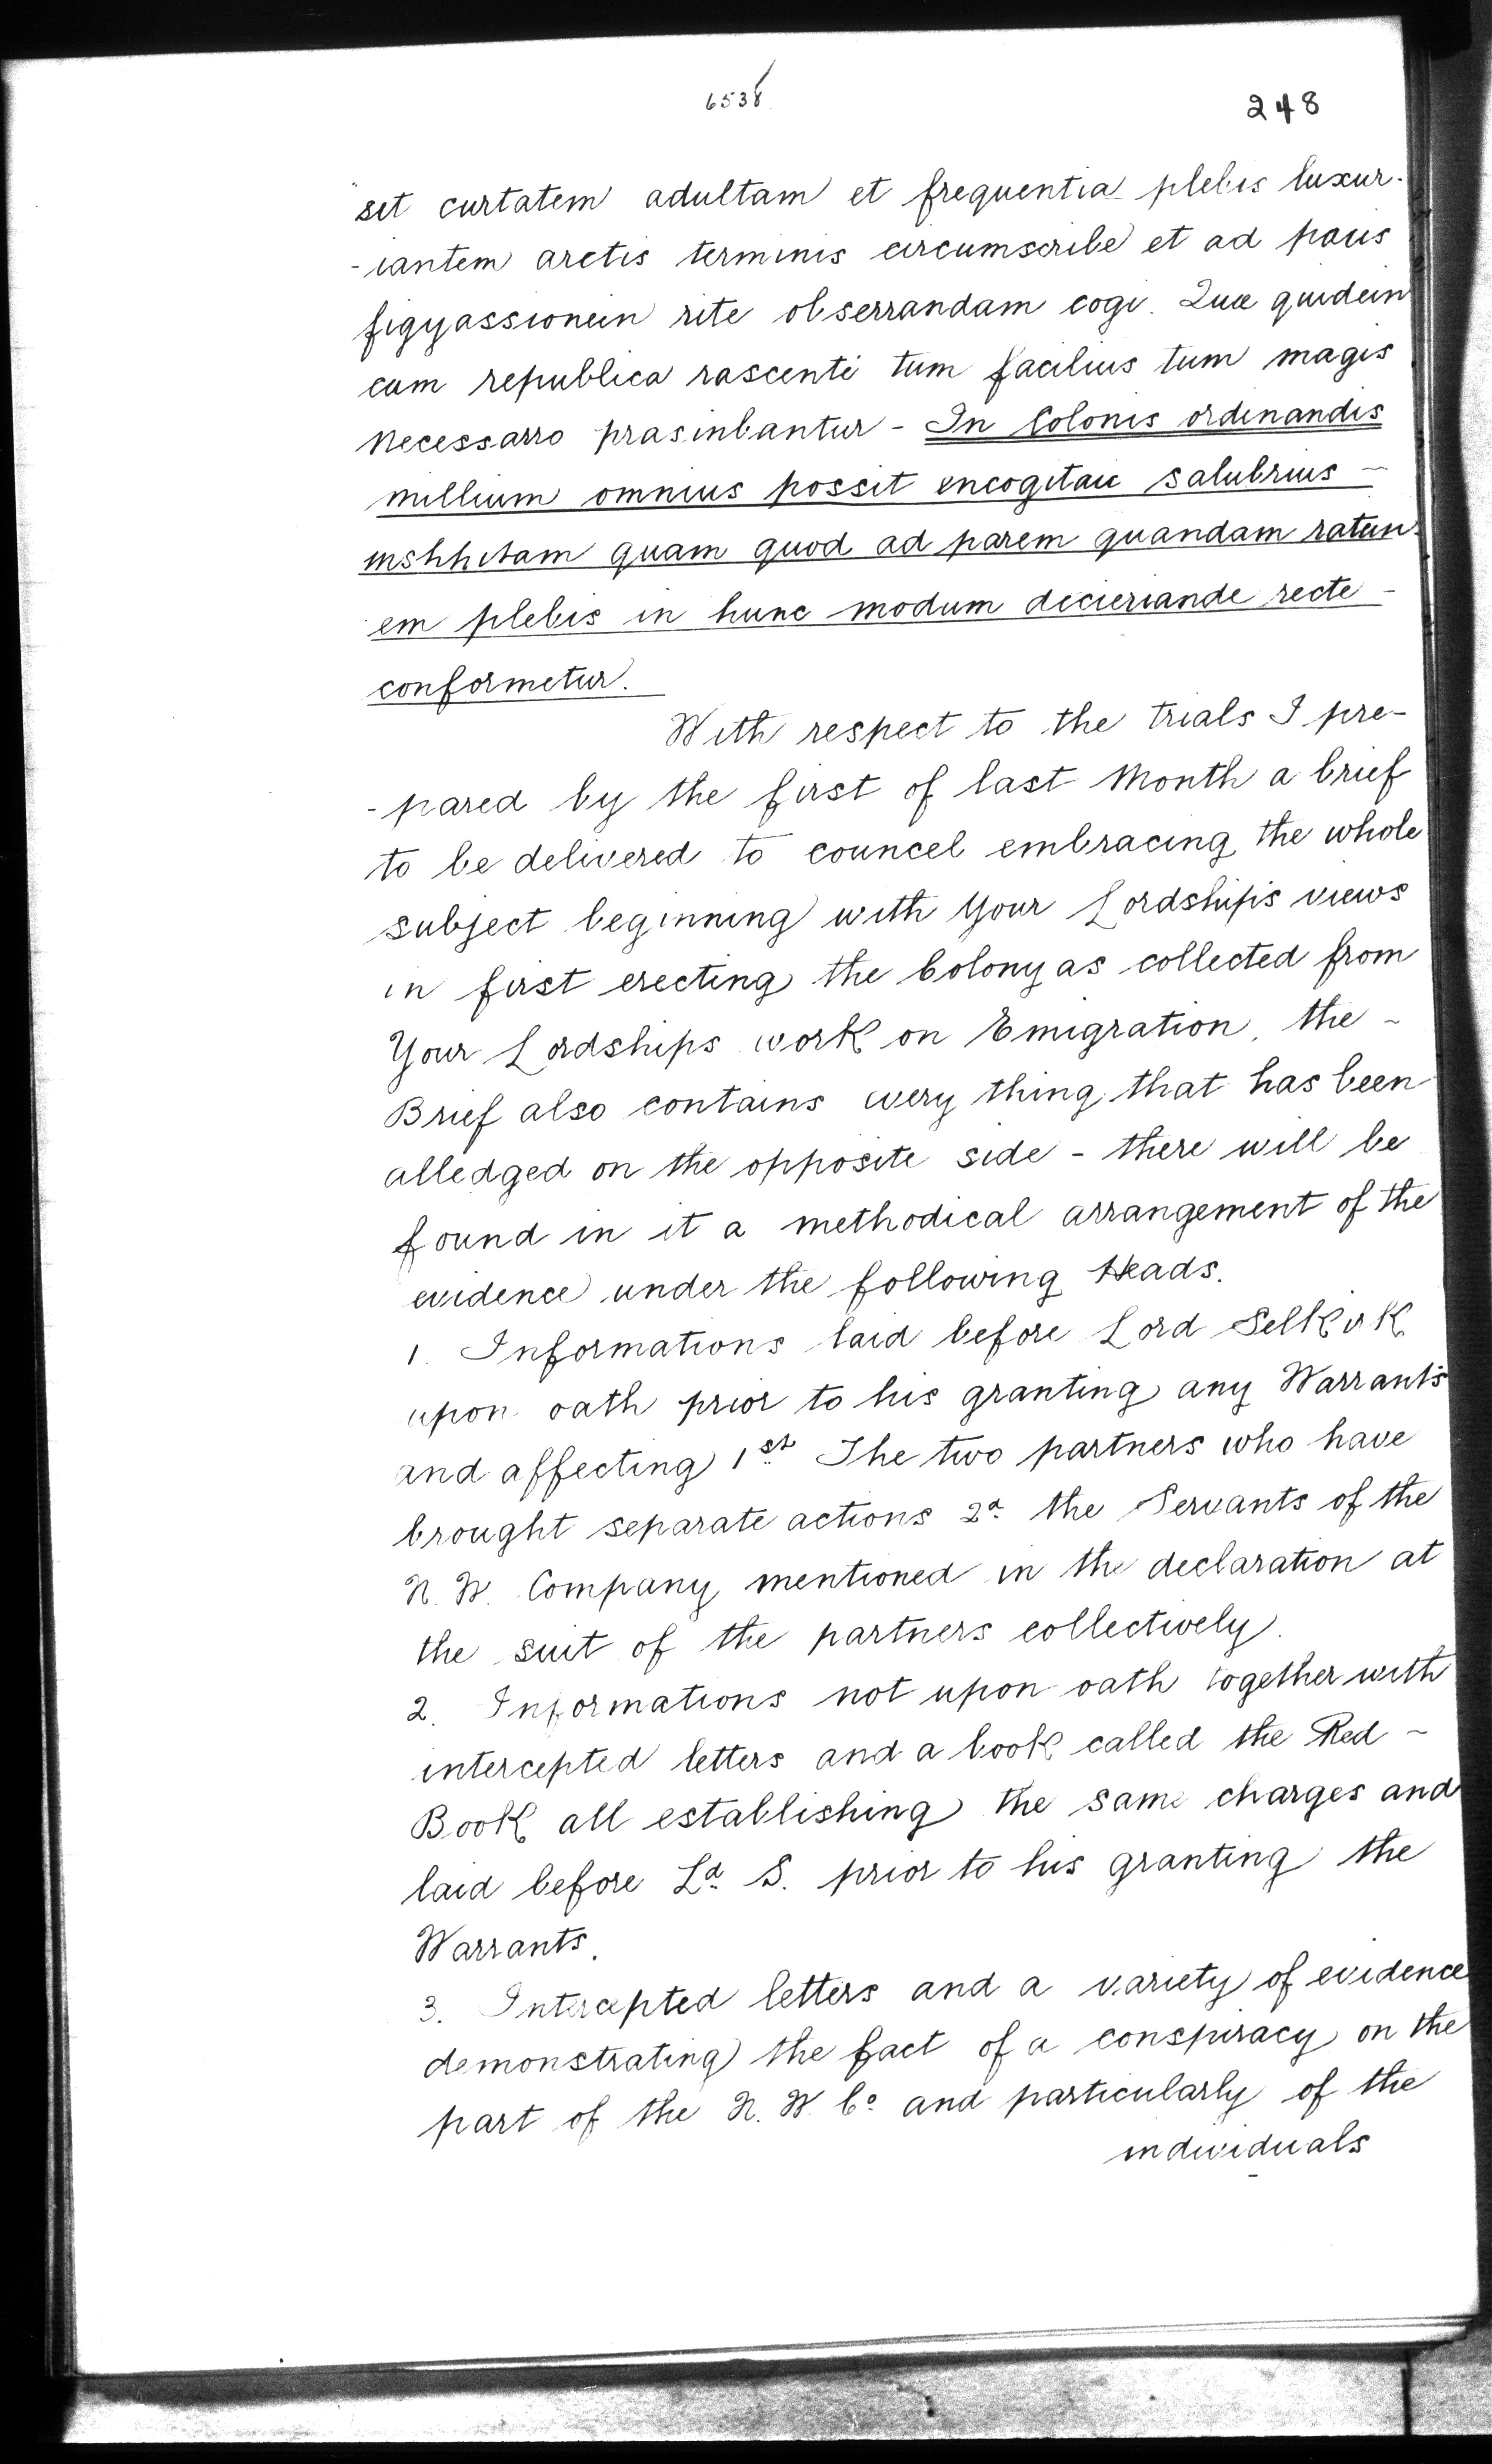 6538
248
set curtatem adultam et frequentia plebis luxur-
-iantem arctis terminis circumscribe et ad paus
figyassionein rite obserrandam cogi. Quæ quidein
cum republica rascenti tum facilius tum magis
necessarro prasinbantur - In Colonis ordinandis
millium omnius possit encogitaie salubrius -
mshhitam quam quod ad parem quandam ratun-
em plebis in hunc modum decieriande recte -
conformetur.
With respect to the trials I pre-
-pared by the first of last Month a brief
to be delivered to councel embracing the whole
subject beginning with your Lordship's views
in first erecting the Colony as collected from
Your Lordships work on Emigration, the -
Brief also contains every thing that has been
alledged on the opposite side - there will be
found in it a methodical arrangement of the
evidence under the following Heads.
1. Informations laid before Lord Selkirk
upon oath prior to his granting any Warrants
and affecting 1st The two partners who have
brought separate actions 2d the Servants of the
N. W. Company mentioned in the declaration at
the suit of the partners collectively.
2. Informations not upon oath together with
intercepted letters and a book called the Red -
Book all establishing the same charges and
laid before Ld S. prior to his granting the
Warrants.
3. Intercepted letters and a variety of evidence
demonstrating the fact of a conspiracy on the
part of the N. W. Co and particularly of the
individuals